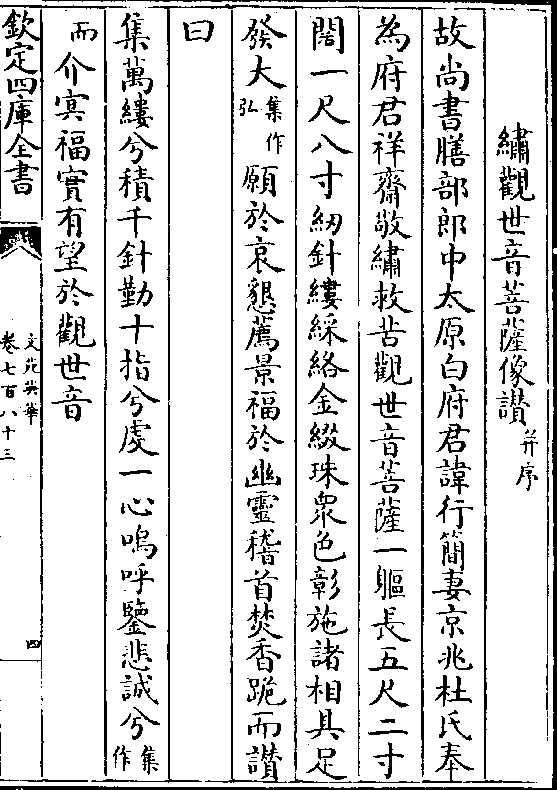 繡觀世音菩薩像讃并序
故尚書膳部郎中太原白府君諱行簡妻京兆杜氏奉
為府君祥齋敬繡救苦觀世音菩薩一軀長五尺二寸
闊一尺八寸紉針縷綵絡金綴珠衆色彰施諸相具足
發大集作弘願於哀懇薦景福於幽靈稽首焚香跪而讃
曰
集萬縷兮積千針勤十指兮虔一心嗚呼鑒悲誠兮集作
而介冥福實有望於觀世音
欽定四庫全書
文苑英華
卷七百八十三
四